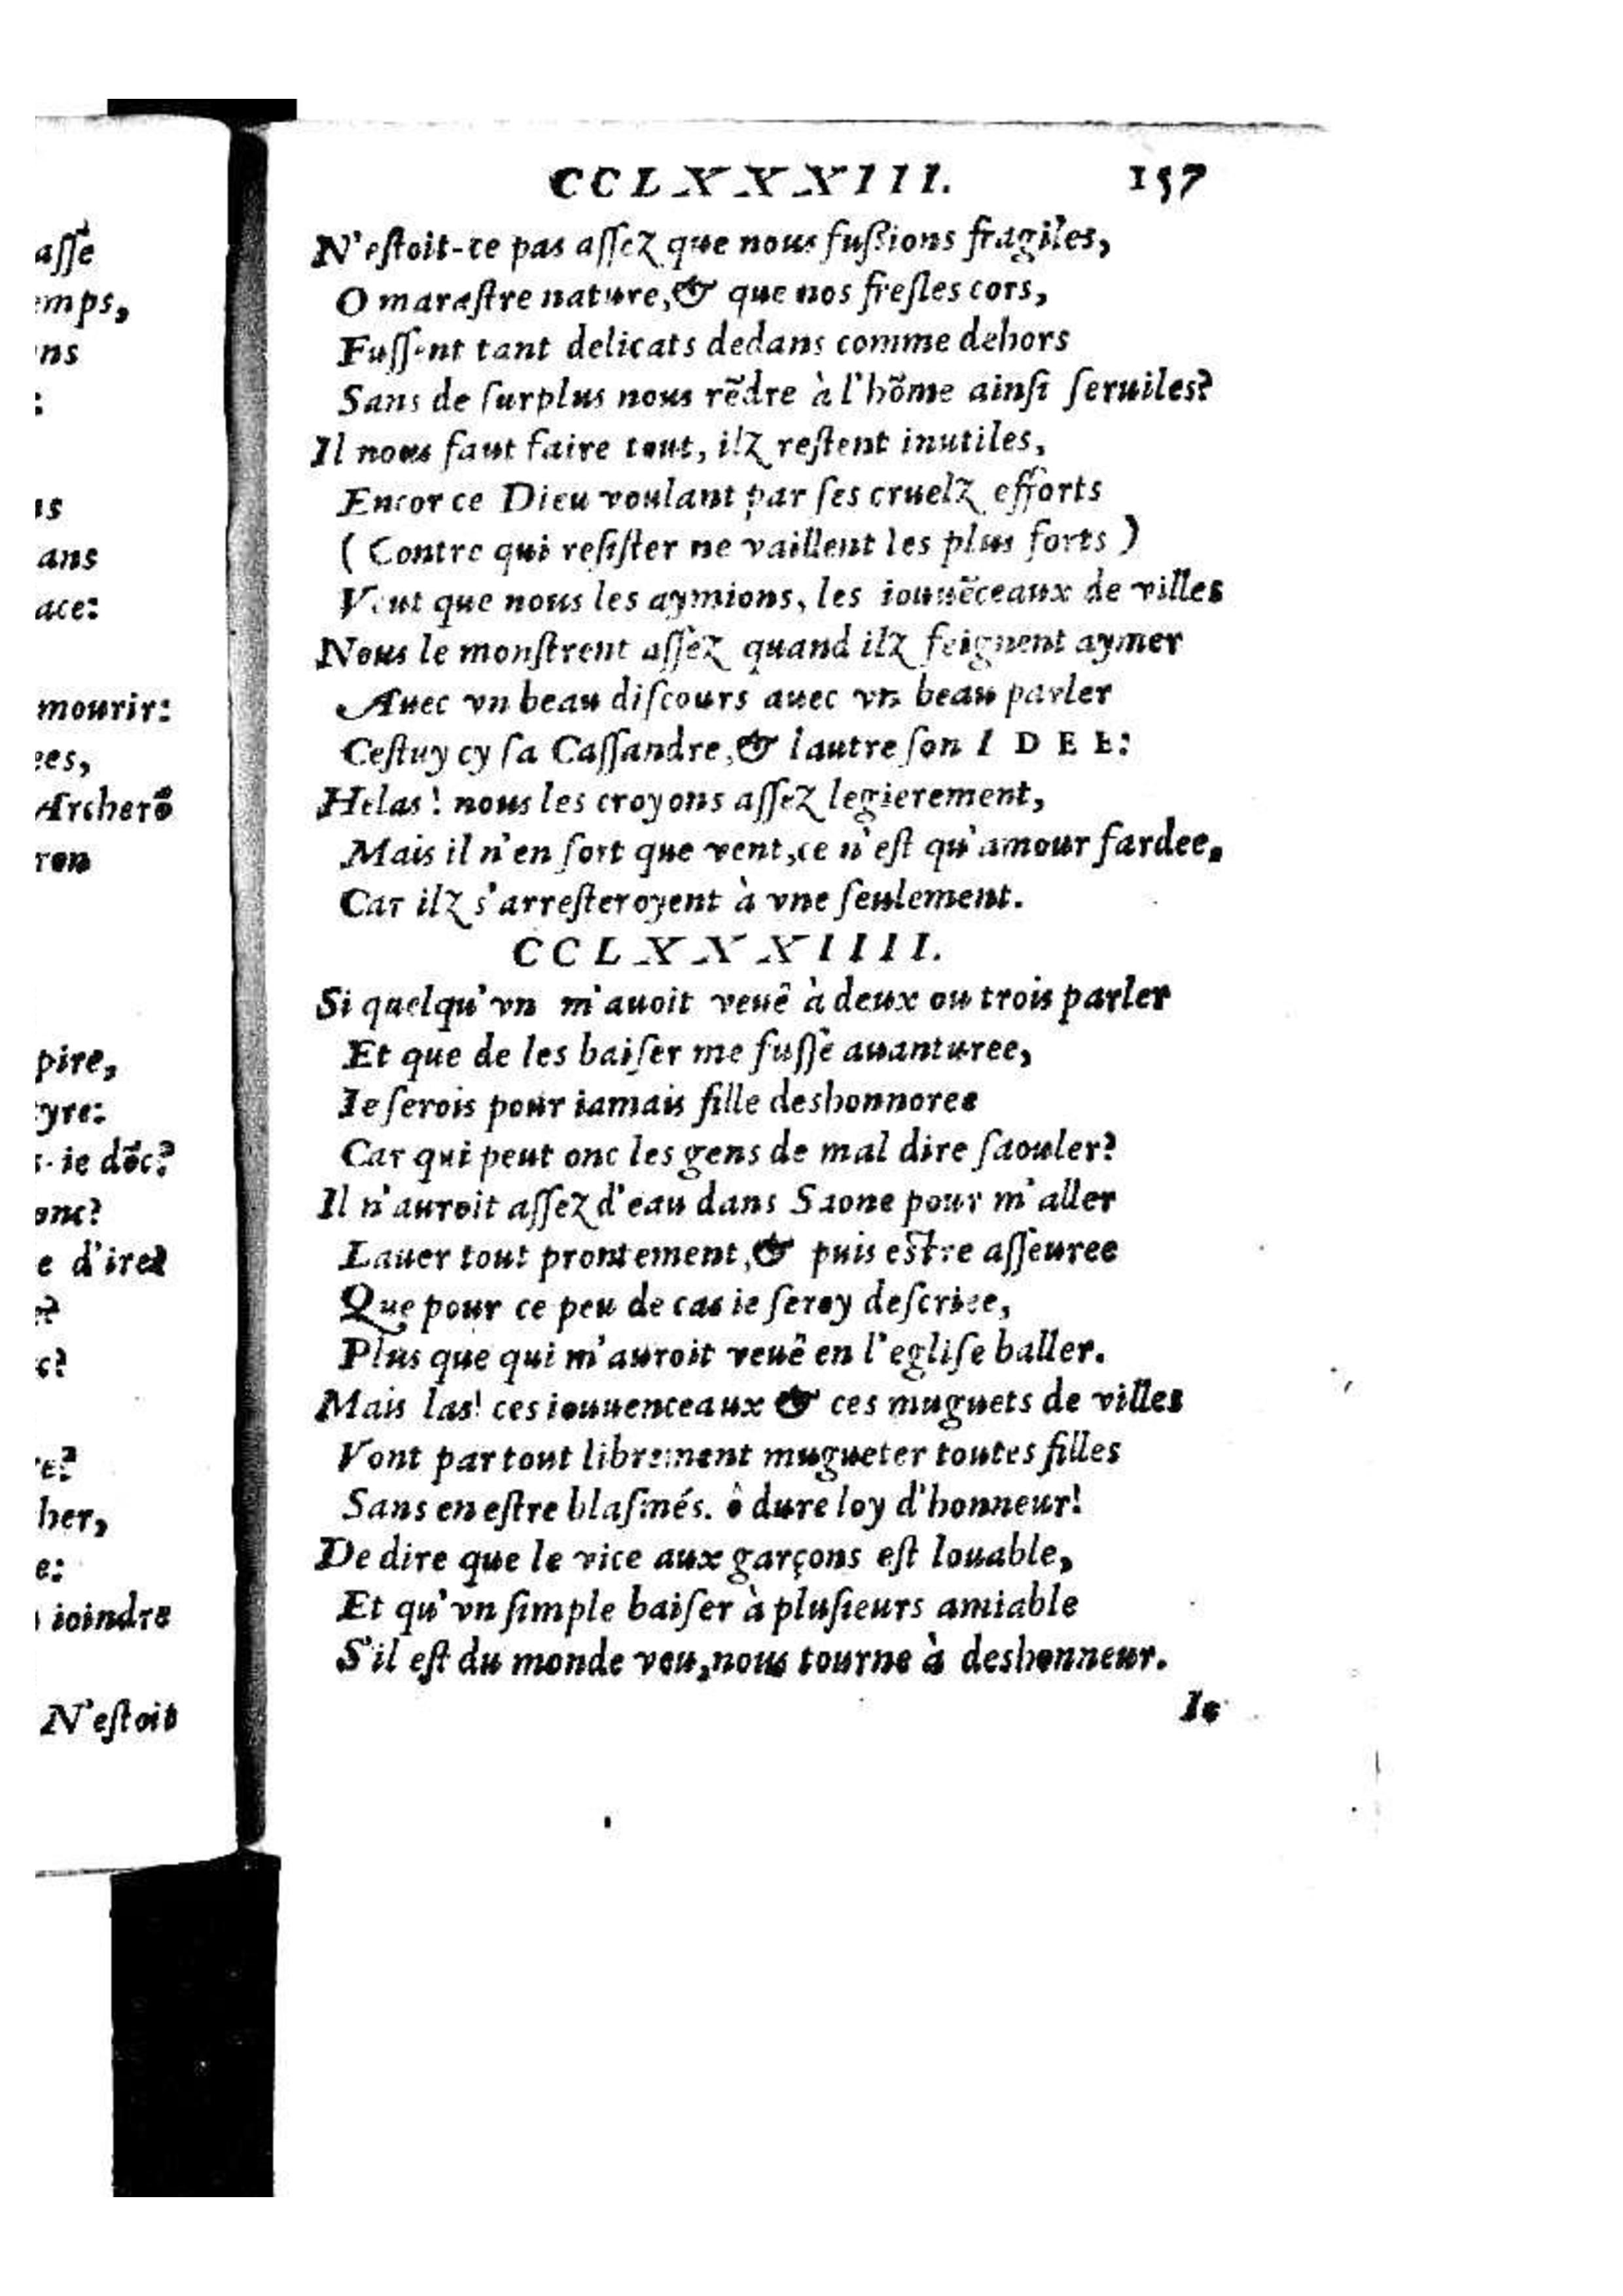 aſſé
emps,
ns
:
us
ans
ace:
mourir:
ees,
Archerõ
ron
pire,
tyre:
s-ie dõc?
onc?
e d'ire?
e?
c?
re?
her,
e:
ioindre
N'eſtoit
CCLXXXIII. 157
N'eſtoit-ce pas aſſez que nous fuſsions fragiles,
O maraſtre nature, & que nos freſles cors,
Fuſſent tant delicats dedans comme dehors
Sans de ſurplus nous rẽdre à l'hõme ainſi ſeruiles?
Il nous faut faire tout, ilz reſtent inutiles,
Encor ce Dieu voulant par ſes cruelz efforts
(Contre qui reſiſter ne vaillent les plus forts)
Veut que nous les aymions, les iouuẽceaux de villes
Nous le monſtrent aſſez quand ilz feignent aymer
Auec vn beau diſcours auec vn beau parler
Ceſtuy cy ſa Caſſandre, & lautre ſon IDEE:
Helas! nous les croyons aſſez legierement,
Mais il n'en ſort que vent, ce n'eſt qu'amour fardee,
Car ilz s'arreſteroyent à vne ſeulement.
CCLXXXIIII.
Si quelqu'vn m'auoit veuê à deux ou trois parler
Et que de les baiſer me fuſſe auanturee,
Ie ſerois pour iamais fille deshonnoree
Car qui peut onc les gens de mal dire ſaouler?
Il n'auroit aſſez d'eau dans Saone pour m'aller
Lauer tout prontement, & puis eſtre aſſeuree
Que pour ce peu de cas ie ſeroy deſcriee,
Plus que qui m'auroit veuê en l'egliſe baller.
Mais las! ces iouuenceaux & ces muguets de villes
Vont par tout librement mugueter toutes filles
Sans en eſtre blaſmés. ô dure loy d'honneur!
De dire que le vice aux garçons eſt louable,
Et qu'vn ſimple baiſer à pluſieurs amiable
S'il eſt du monde veu, nous tourne à deshonneur.
Ie